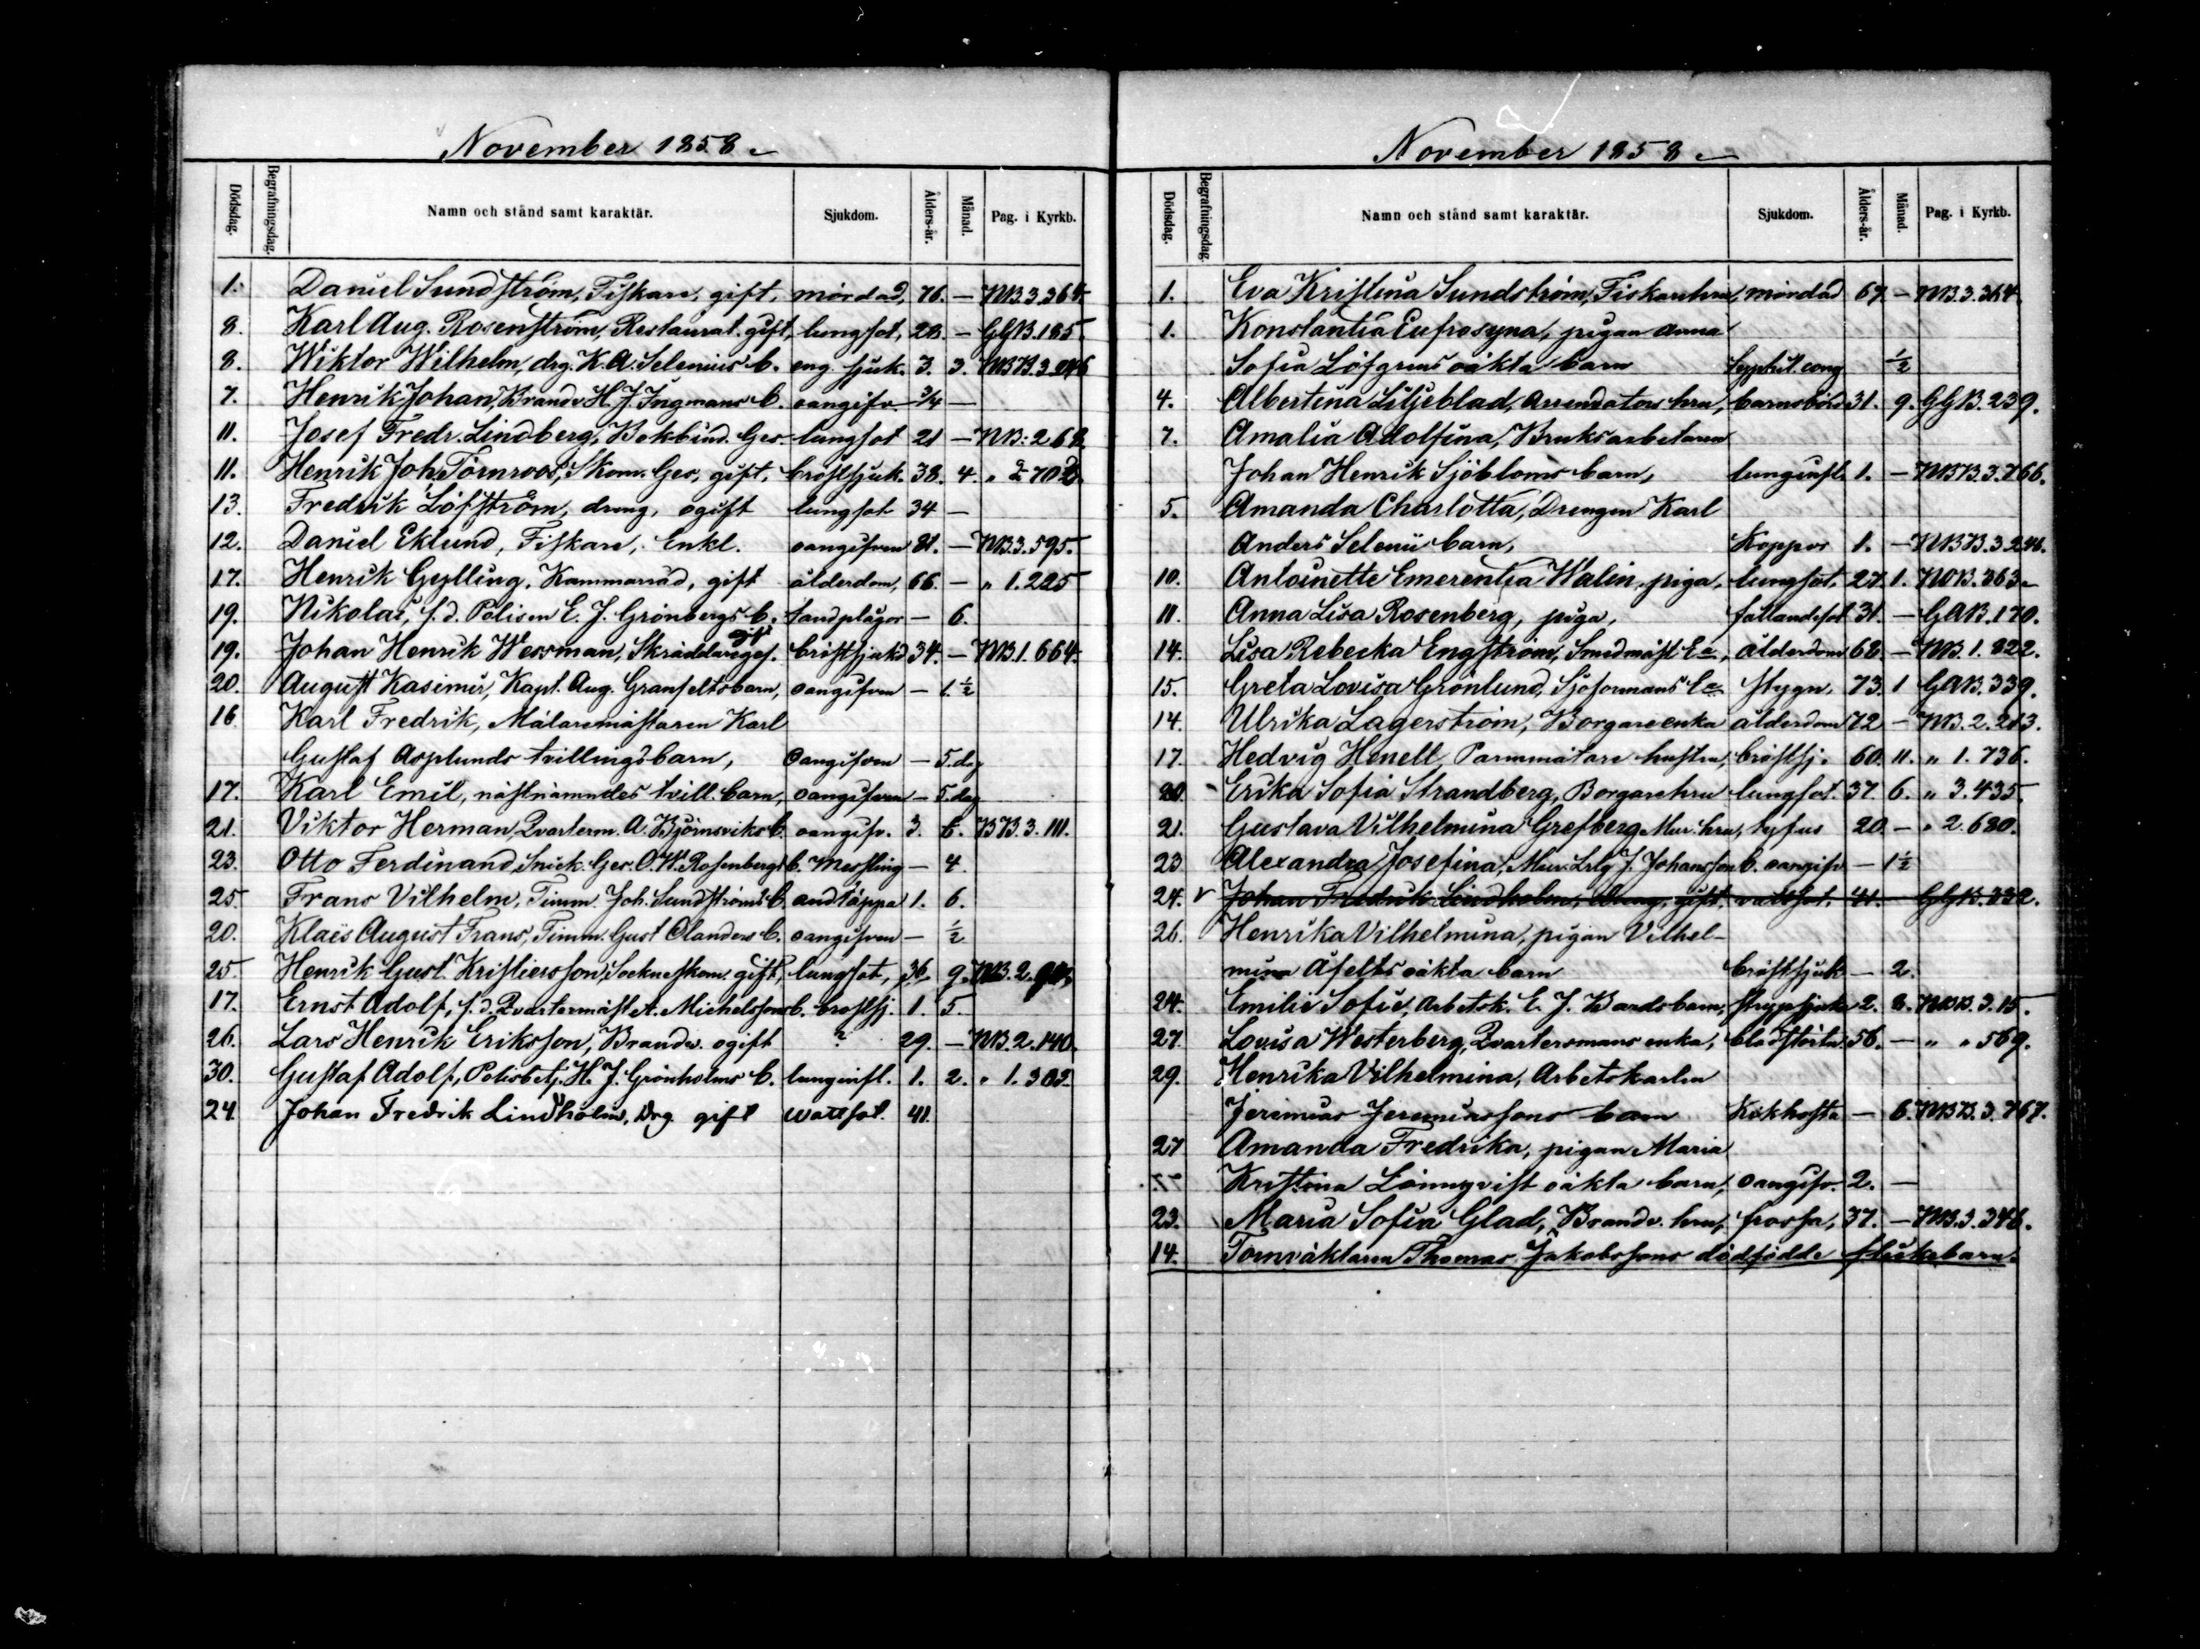 November 1858
Dödsdag. Begrafningsdag. Namn och stånd samt karaktär. Sjukdom. Ålders-år. Månad. Pag. i Kyrkb.
1. Daniel Sundström, Fiskare, gift, mördad, 76. — NB.3.364.
8. Karl Aug. Rosenström, Restaurat. gift, lungsot, 28. — GGB.185
8. Wiktor Wilhelm, drg. K. A. Selenius b. eng. sjuk. 3. 3. NBB.3.246
7. Henrik Johan, Brandv. H. J. Ingmans b. oangifv. 3/4 —
11. Josef Fredr. Lindberg, Bokbind. Ges. lungsot 21 — NB:268
11. Henrik Joh. Törnroos, Skom. Ges. gift. bröstsjuk. 38. 4. „ 2.702.
13. Fredrik Löfström, dreng, ogift lungsot 34 —
12. Daniel Eklund, Fiskare, Enkl. oangifven 81. — NB.3.595.
17. Henrik Gylling, Kammarråd, gift ålderdom, 66. — „ 1.225
19. Nikolai, f. d. Polisen E. J. Grönbergs b. tandplågor — 6.
19. Johan Henrik Wessman, Skräddareges. gift bröstsjukd 34. — NB.1.664.
20. August Kasimir, Kapt. Aug. Granfeltsbarn, oangifven — 1 1/2
16. Karl Fredrik, Målaremästaren Karl
Gustaf Asplunds tvillingsbarn, Oangifven — 5. dag
17. Karl Emil, nästnämndes tvill. barn, oangifven — 5. dag
21. Viktor Herman, Qvarterm. A. Björnsviks b. oangifv. 3. 6. BB.3.111.
23. Otto Ferdinand, Snick. Ges. O. W. Rosenbergs b. Messling — 4.
25. Frans Vilhelm, Timm. Joh. Sundströms b. andtäppa 1. 6.
20. Klaës August Frans, Timm. Gust Olanders b. oangifven — 1/2
25. Henrik Gust. Kristiersson, Sockneskom. gift, lungsot, 36. 9. NB.2.
17. Ernst Adolf, f. d. Qvartermäst. A. Michelssons b. bröstsj. 1. 5.
26. Lars Henrik Eriksson, Brandv. ogift ? 29. — NB.2.140.
30. Gustaf Adolf, Polisbetj. H. J. Grönholms b. lunginfl. 1. 2. „ 1.303.
24. Johan Fredrik Lindholm, Drg. gift wattsot. 41.
November 1858
Dödsdag. Begrafningsdag. Namn och stånd samt karaktär. Sjukdom. Ålders-år. Månad. Pag. i Kyrkb.
1. Eva Kristina Sundström, Fiskarehru, mördad 67. — NB.3.364.
1. Konstantia Eufrosyna, pigan Anna
Sofia Löfgrens oäkta barn Syphil. cong 1/2
4. Albertina Liljeblad, Arrendators hru, barnsbörd 31. 9. GGB.239.
7. Amalia Adolfina, Bruksarbetaren
Johan Henrik Sjöbloms barn, lunginfl. 1. — NBB.3.766.
5. Amanda Charlotta, Drengen Karl
Anders Selenii barn, Koppor 1. — NBB.3.246.
10. Antoinette Emerentia Walin, piga, lungsot, 27. 1. NOB.363.
11. Anna Lisa Rosenberg, piga, fallandesot 31. — GAB.170.
14. Lisa Rebecka Engström, Smedmäst. Ea, ålderdom 68. — NB.1.822.
15. Greta Lovisa Grönlund, Sjöformans Ea stygn, 73. 1 GAB.339.
14. Ulrika Lagerström, Borgareenka ålderdom 72 — NB.2.213.
17. Hedvig Henell, Parmmätare hustru, bröstsj. 60. 11. „ 1.736.
20. Erika Sofia Strandberg, Borgarehru lungsot. 37. 6. „ 3.435.
21. Gustava Vilhelmina Grefberg, Mur. hru, tyfus 20. — „ 2.680.
23. Alexandra Josefina, Mur. Lrlg J. Johansson b. oangifv — 1 1/2
24. v Johan Fredrik Lindholm, Dreng, gift, vattsot. 41. GGB.332.
26. Henrika Vilhelmina, pigan Vilhel-
mina Åfelts oäkta barn bröstsjuk — 2.
24. Emilie Sofie, Arbetsk. E. J. Bards barn, strypsjuka 2. 8. NBB.3.15.
27. Lovisa Westerberg, Qvartersmans enka, blodstörtn. 56. — „ „ 569.
29. Henrika Vilhelmina, Arbetskarlen
Jeremias Jeremiassons barn Kikhosta — 6. NBB.3.767.
27. Amanda Fredrika, pigan Maria
Kristina Lönnqvist oäkta barn, oangifv. 2. —
23. Maria Sofia Glad, Brandv. hru, frossa, 37. — NB.3.346.
14. Tornväktaren Thomas Jakobssons dödfödde flickebarn.